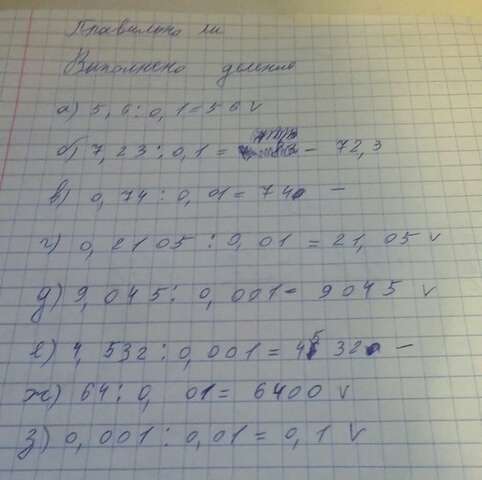 Правильно ли
Выполнено деление
а) 5,6 : 0,1 = 56 v
б) 7,23 : 0,1 = – 72,3
в) 0,74 : 0,01 = 74 –
г) 0,2105 : 0,01 = 21,05 v
д) 9,045 : 0,001 = 9045 v
е) 4,532 : 0,001 = 4532 –
ж) 64 : 0,01 = 6400 v
з) 0,001 : 0,01 = 0,1 v